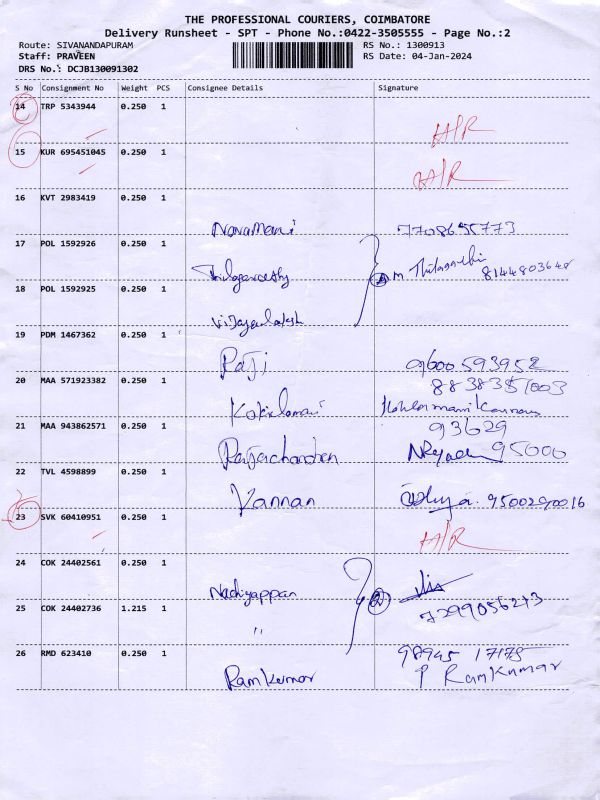 THE PROFESSIONAL COURIERS, COIMBATORE
Delivery Runsheet - SPT - Phone No.:0422-3505555 - Page No.:2
Route: SIVANANDAPURAM RS No.: 1300913
Staff: PRAVEEN RS Date: 04-Jan-2024
DRS No.: DCJB130091302
S No Consignment No Weight PCS Consignee Details Signature
14 TRP 5343944 0.250 1
H/R
15 KUR 695451045 0.250 1
H/R
16 KVT 2983419 0.250 1
Navamani 7708655773
17 POL 1592926 0.250 1
8144803648
18 POL 1592925 0.250 1
19 PDM 1467362 0.250 1
Raji 9600593952
20 MAA 571923382 0.250 1
8838351003
Kokilamani
21 MAA 943862571 0.250 1
93629
95000
22 TVL 4598899 0.250 1
Kannan 9500290016
23 SVK 60410951 0.250 1
H/R
24 COK 24402561 0.250 1
Nachiyappan 2
25 COK 24402736 1.215 1
7299056213
"
26 RMD 623410 0.250 1
98945 17175
Ramkumar P Ramkumar